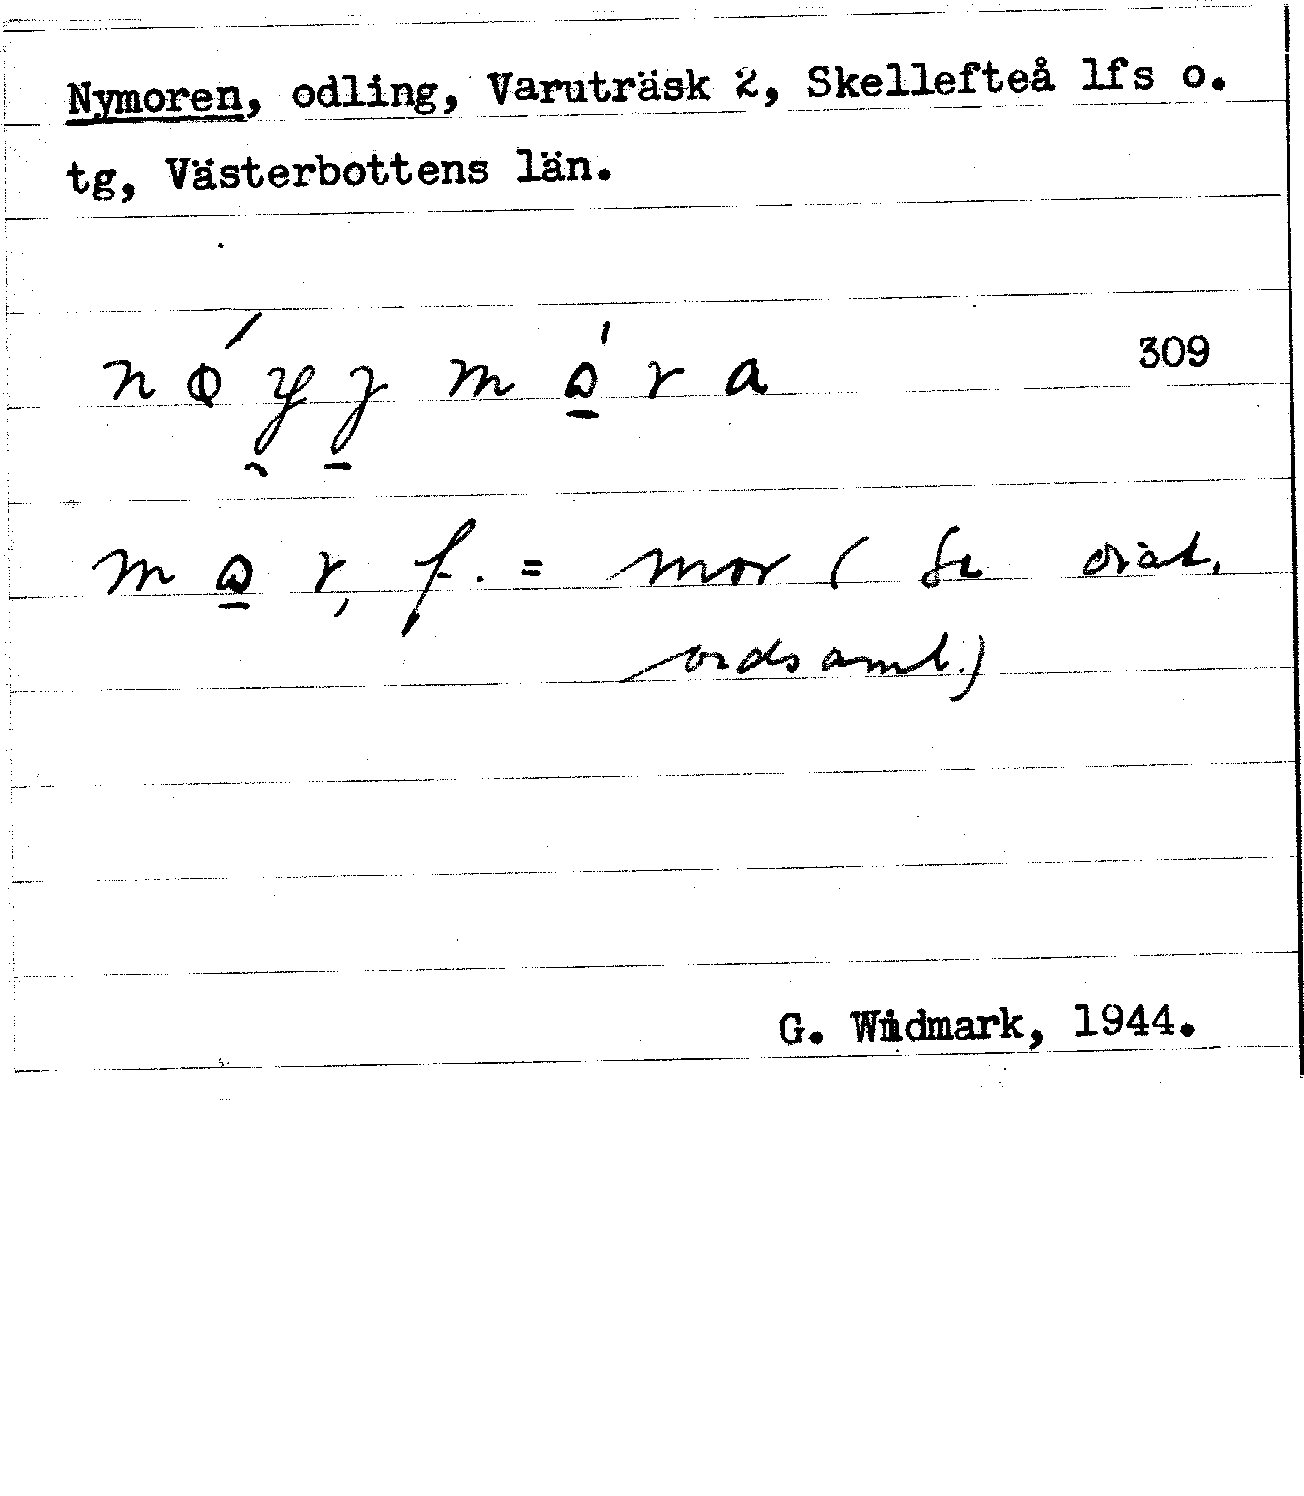 Nymoren, odling, Varuträsk 2, Skellefteå lfs o.
tg, Västerbottens län.
309
f. = mor (se dial.
ordsaml.)
G. Widmark, 1944.